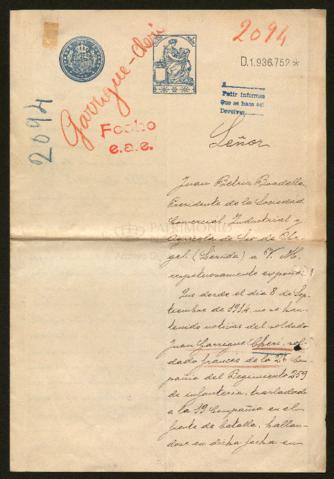 2094
D.1.936,752*
Garrigue-Cheri
2094
Fecho
e.a.e.
A
Pedir informes
Que se hace así
Devolver
Señor
Juan
Presidente de la Sociedad
Comercial, Industrial y
Agrícola de Seo de Ur-
gel. (Lérida) a V. M.
respetuosamente expone:
Que desde el día 8 de Sep-
tiembre de 1914 no se han
tenido noticias del soldado
Juan Garrigue Cheri, sol-
dado francés de la 26 Com-
pañia del Regimiento 259
de infantería, trasladado
a la 19 Compañia en el
frente de batalla, hallan-
dose en dicha fecha en